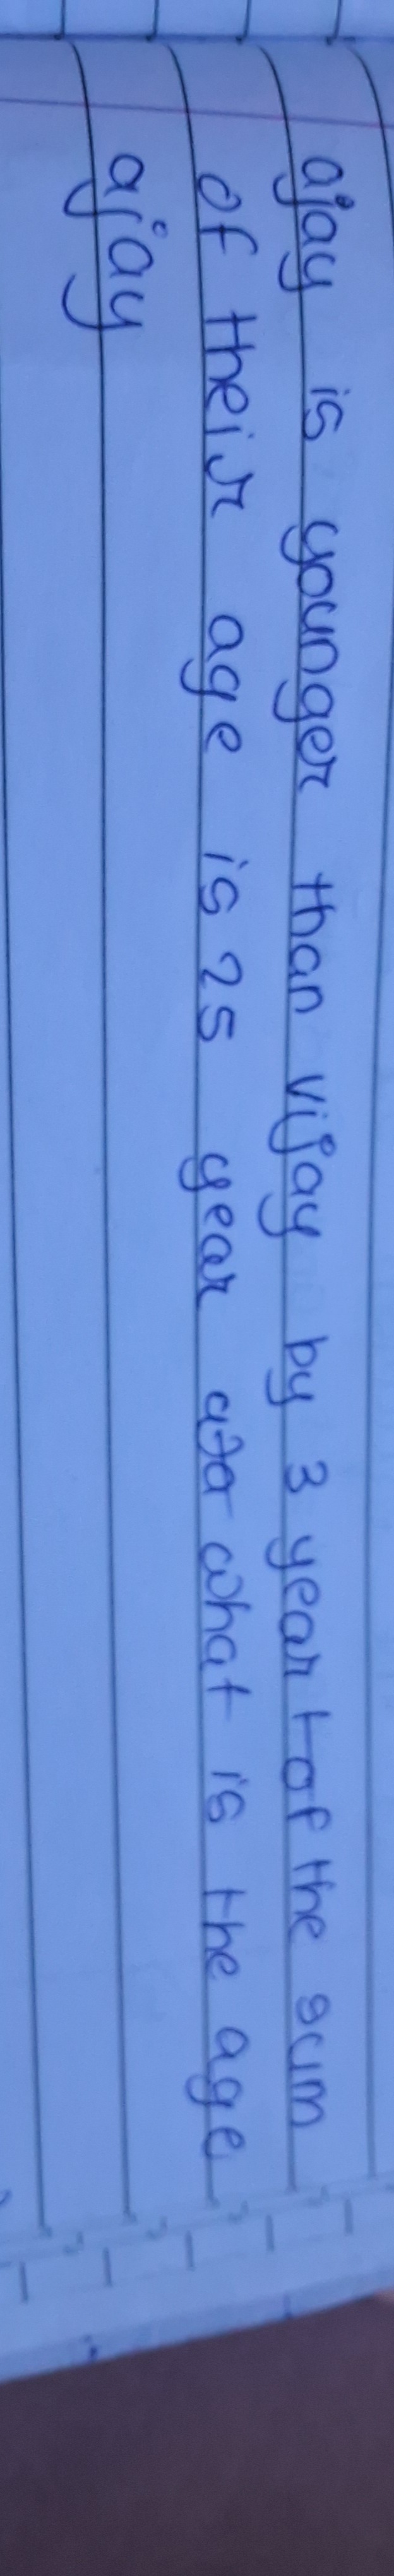 ajay is younger than vijay by 3 year of the sum
of their age is 25 year what is the age
ajay